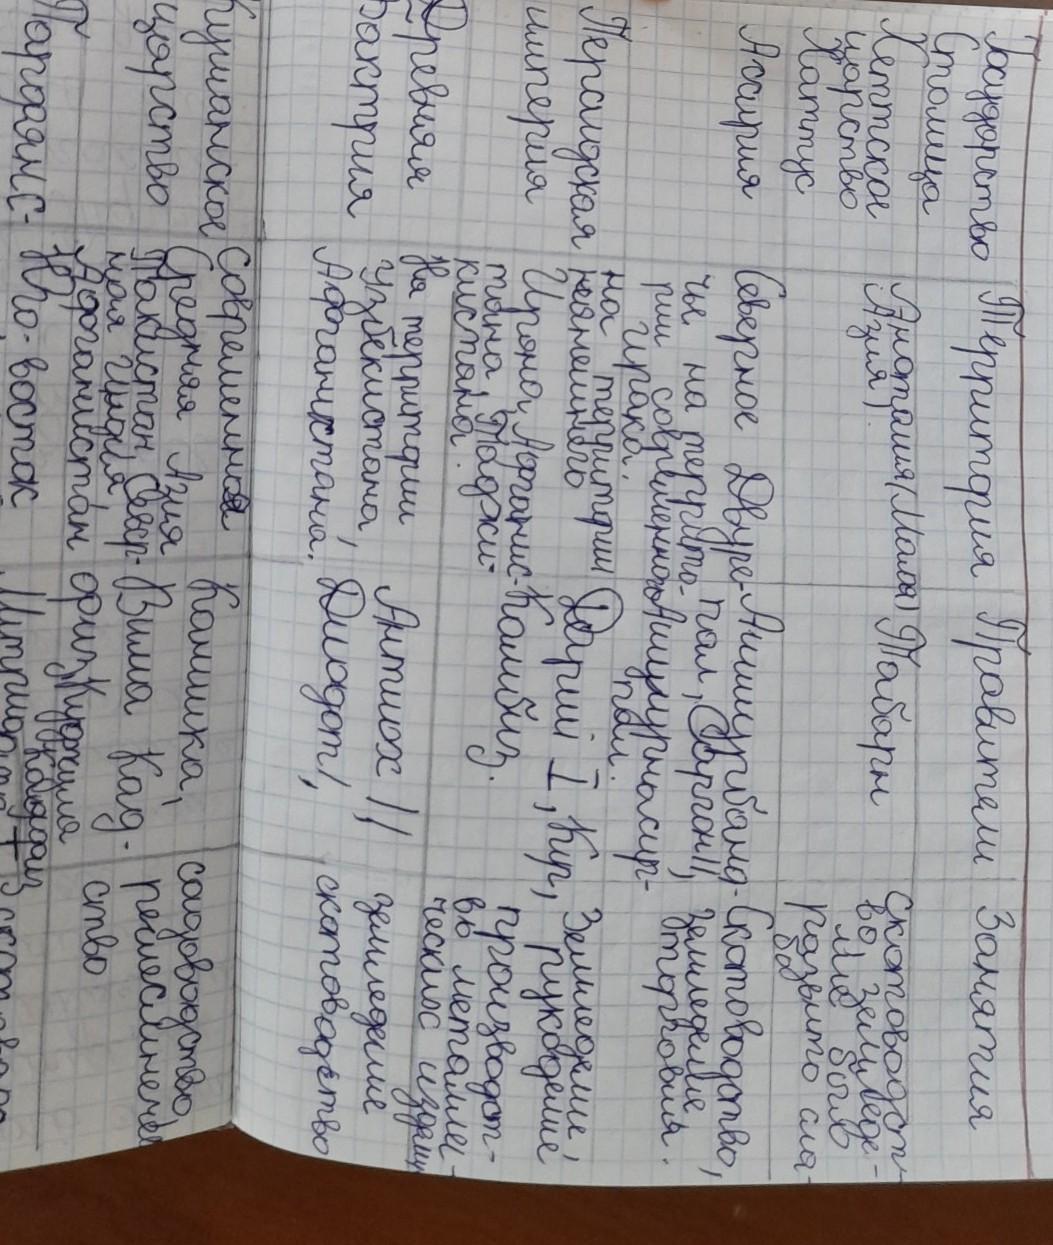 Государство
Столица
Территория
Правители
Занятия
Хеттское
царство
Хаттус
Анатолия (Малая
Азия).
Табарн
Скотоводст-
во земледе-
лие было
развито сла-
бо
Асирия
Северное Двуре-
чье на террито-
рии современного
Ирака.
Ашшурбанд-
пал, Саргон II,
Ашшурнасир-
пал.
Скотоводство,
земледелие,
торговия.
Персидская
империя
на территории
нынешнего
Ирана, Афганис-
тана, Таджи-
кистана.
Дарий I, Кир,
Камбиз.
Земледелие,
рукоделие
производст-
во металли-
ческих издели
Древняя
Бактрия
На территории
Узбекистана,
Афганистана.
Антиох II
Диодот,
земледелие
скотоводство
Кушанское
царство
Современное
Средняя Азия
Пакистан, Север-
ная Индия
Афганистан
Канишка,
Вима Кад-
физ, Куджула
Кадфиз
садоводство
ремесленни
ство
Парфянс-
Юго-восток